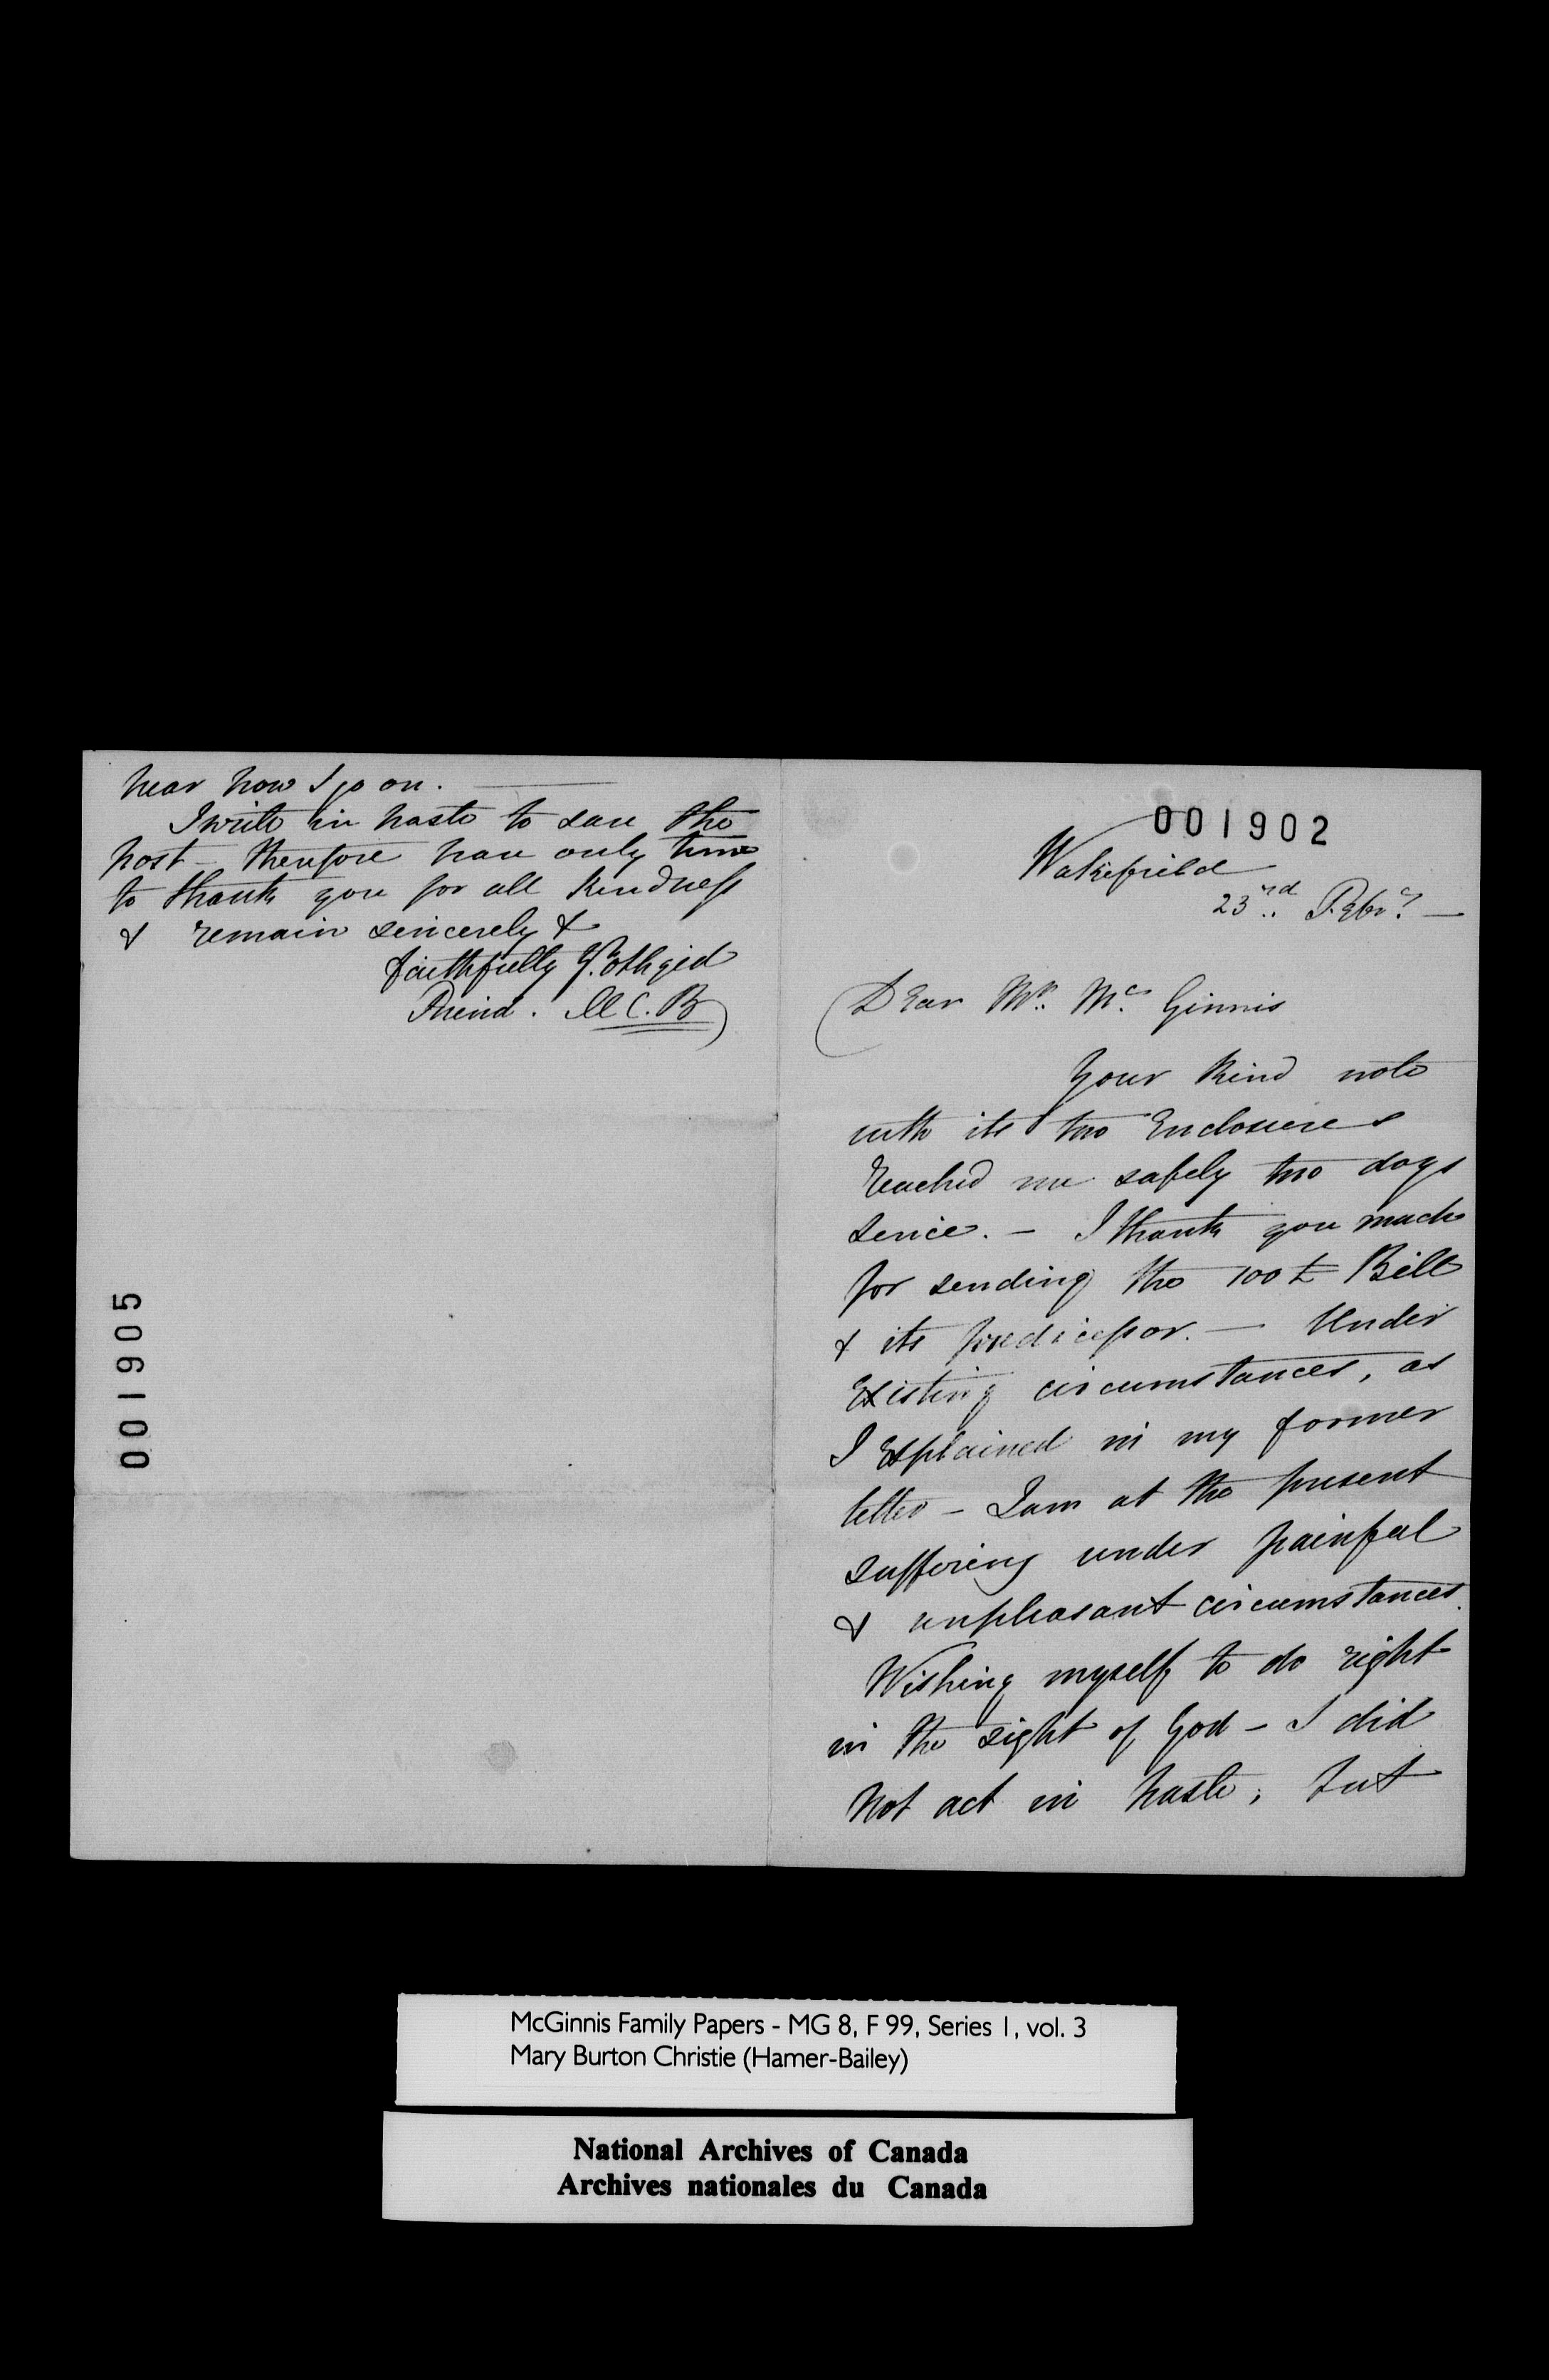 hear how I go on. —
I write in haste to save the
post – therefore have only time
to thank you for all kindness
& remain sincerely &
faithfully Yr. oblged
Friend. M C. B
001905
001902
Wakefield
23rd Febr. —
Dear Mr. Mc Ginnis
Your kind note
with its two Enclosures
reached me safely two days
sence. – I thank you much
for sending the 100 £ Bill
& its predicessor. — Under
Existing circumstances, as
I Explained in my former
letter – I am at the present
suffering under painful
& unpleasant circumstances.
Wishing myself to do right
in the sight of God – I did
not act in haste, but
McGinnis Family Papers - MG 8, F 99, Series 1, vol. 3
Mary Burton Christie (Hamer-Bailey)
National Archives of Canada
Archives nationales du Canada